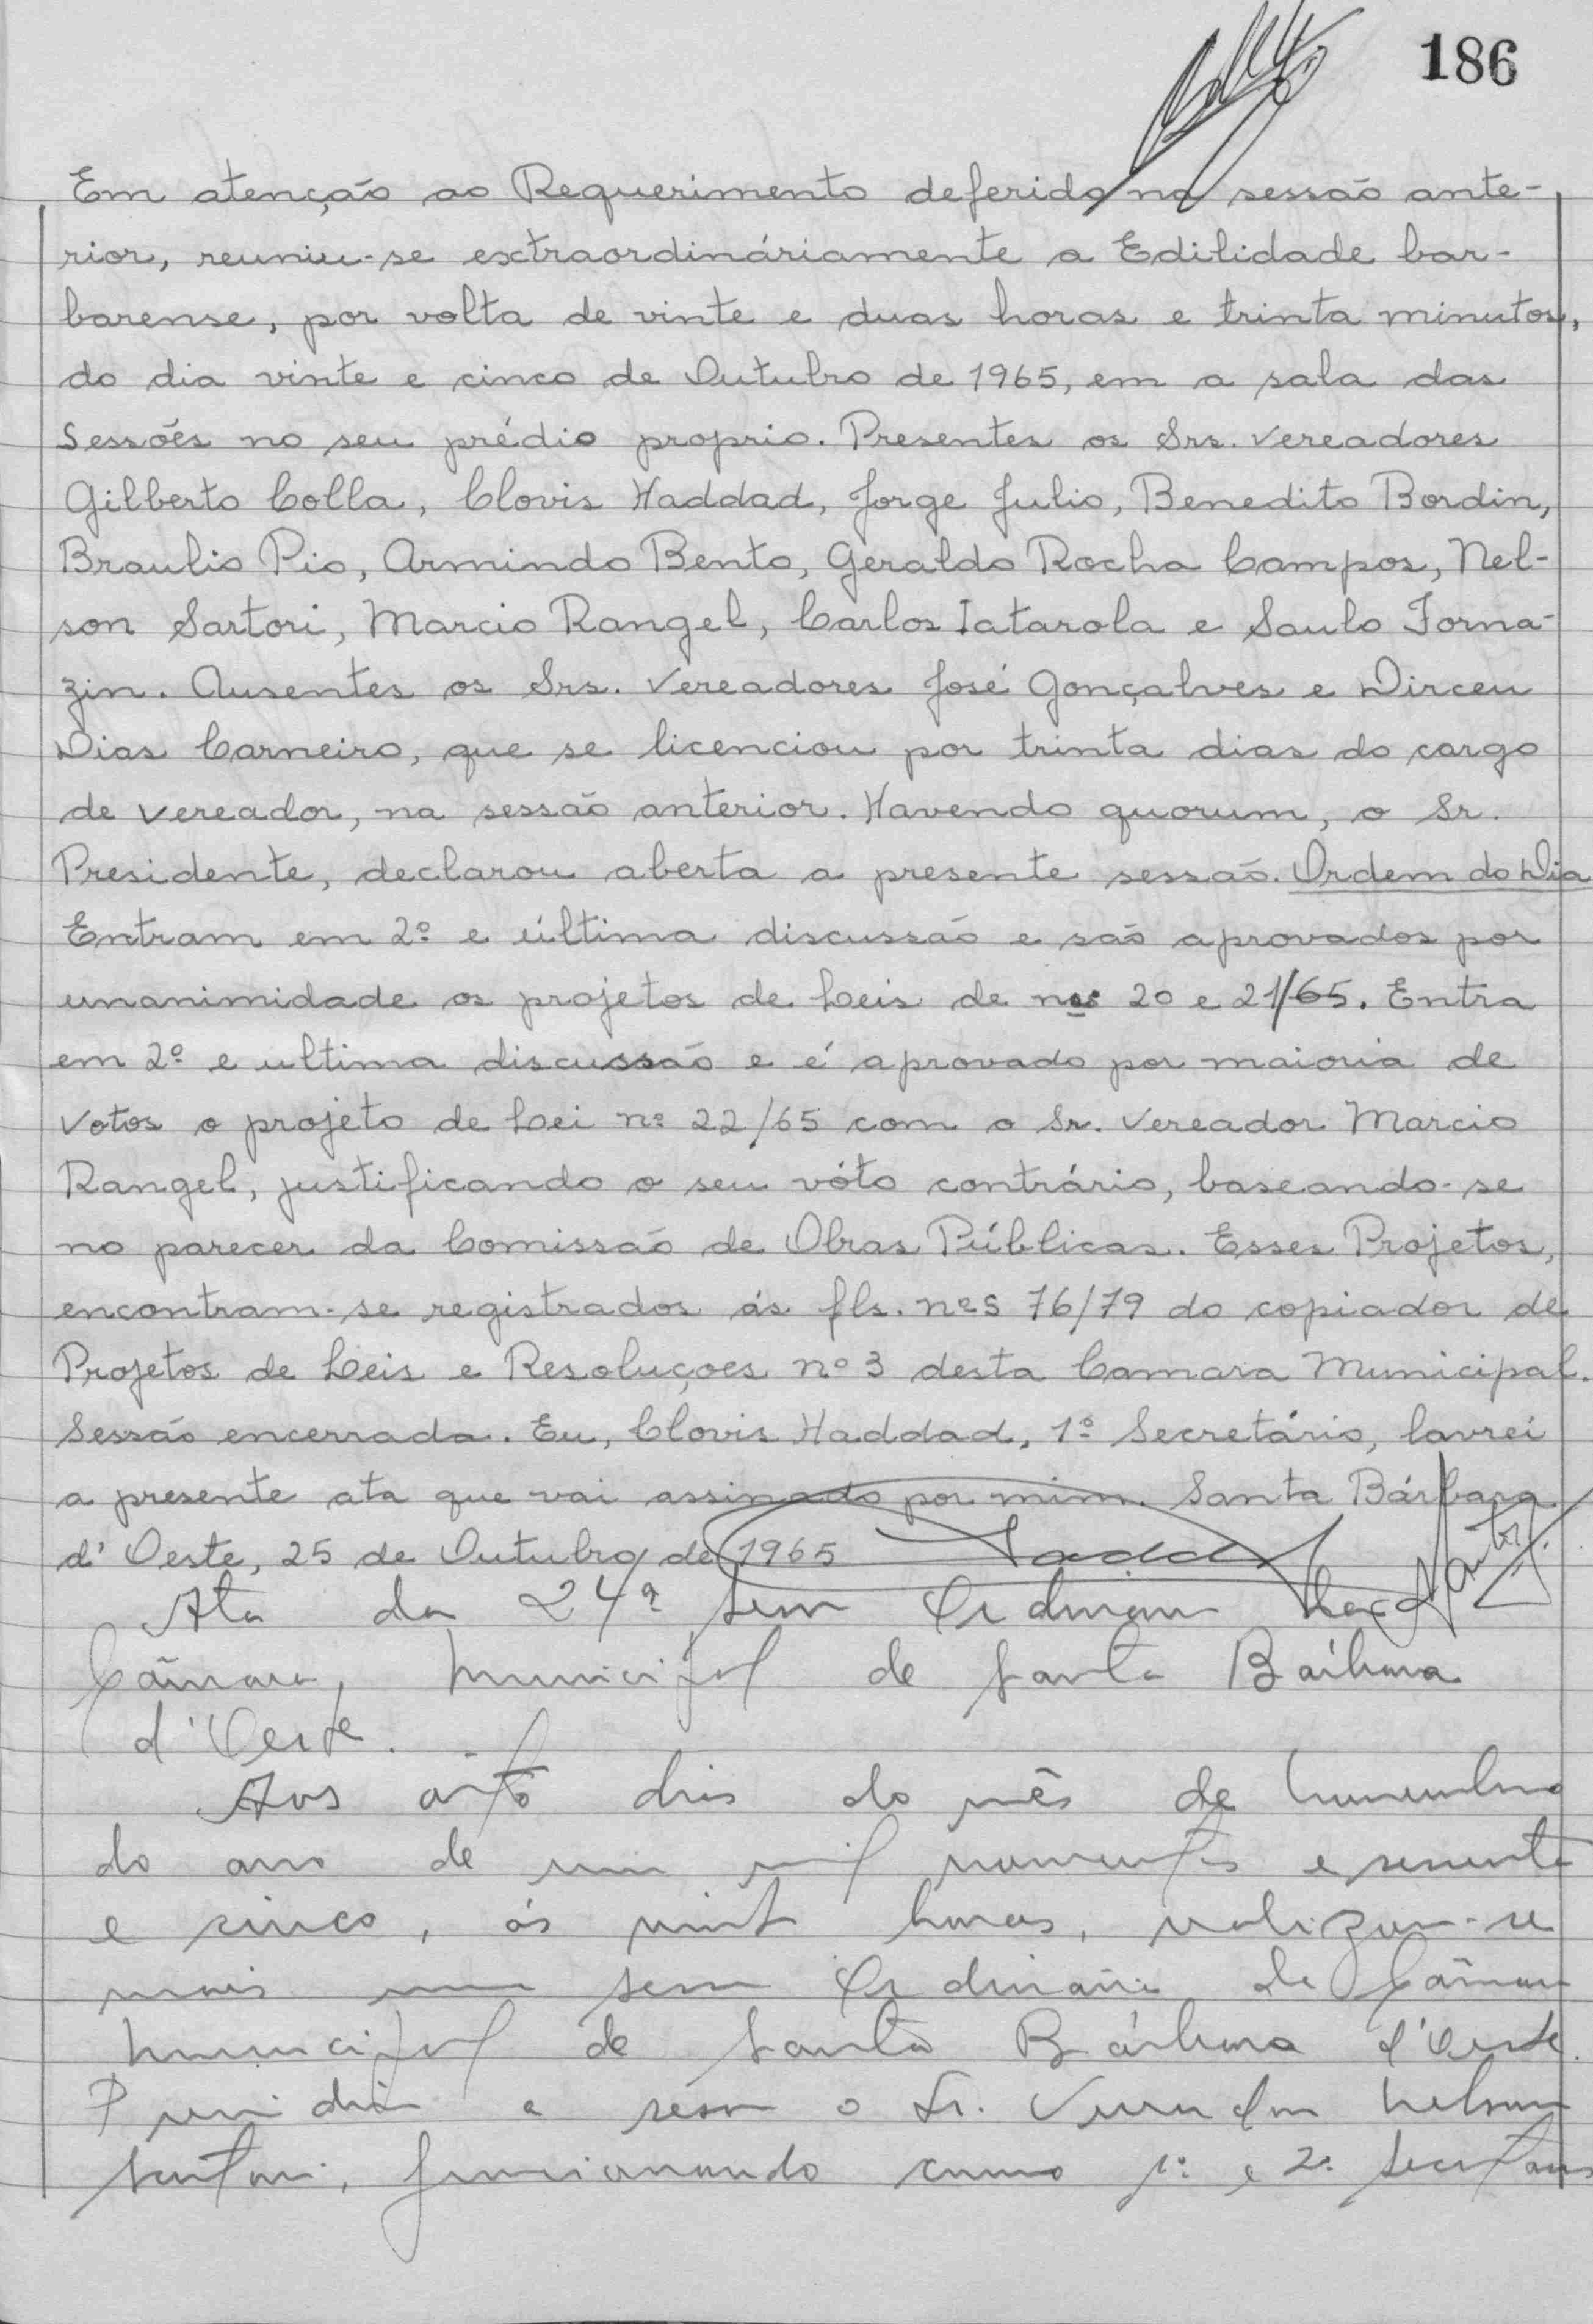 186
Em atenção ao Requerimento deferido na sessão ante-
rior, reuniu-se extraordináriamente a Edilidade bar-
barense, por volta de vinte e duas horas e trinta minutos,
do dia vinte e cinco de Outubro de 1965, em a sala das
Sessões no seu prédio proprio. Presentes os Srs. Vereadores
Gilberto Colla, Clovis Haddad, Jorge Julio, Benedito Bordin,
Braulio Pio, Armindo Bento, Geraldo Rocha Campos, Nel-
son Sartori, Marcio Rangel, Carlos Tatarola e Saulo Forna-
zin. Ausentes os Srs. Vereadores José Gonçalves e Dirceu
Dias Carneiro, que se licenciou por trinta dias do cargo
de vereador, na sessão anterior. Havendo quorum, o Sr.
Presidente, declarou aberta a presente sessão. Ordem do Dia
Entram em 2º e última discussão e são aprovados por
unanimidade os projetos de Leis de nos 20 e 21/65. Entra
em 2º e ultima discussão e é aprovado por maioria de
votos o projeto de Lei nº 22/65 com o Sr. Vereador Marcio
Rangel, justificando o seu vóto contrário, baseando-se
no parecer da Comissão de Obras Públicas. Esses Projetos,
encontram-se registrados ás fls. nºs 76/79 do copiador de
Projetos de Leis e Resoluçoes nº 3 desta Camara Municipal.
Sessão encerrada. Eu, Clovis Haddad, 1º Secretário, lavrei
a presente ata que vai assinado por mim. Santa Bárbara
d'Oeste, 25 de Outubro de 1965
Ata da 24ª Ordinaria
Câmara Municipal de Santa Bárbara
d'Oeste.
Aos oito dias do mês de Novembro
do ano de um mil novecentos e sessenta
e cinco, ás vinte horas, realizou-se
mais uma sessão Ordinária da Câmara
Municipal de Santa Bárbara d'Oeste.
Presidiu a sessão o Sr. Vereador Nelson
Sartori, funcionando como 1º e 2º Secretários